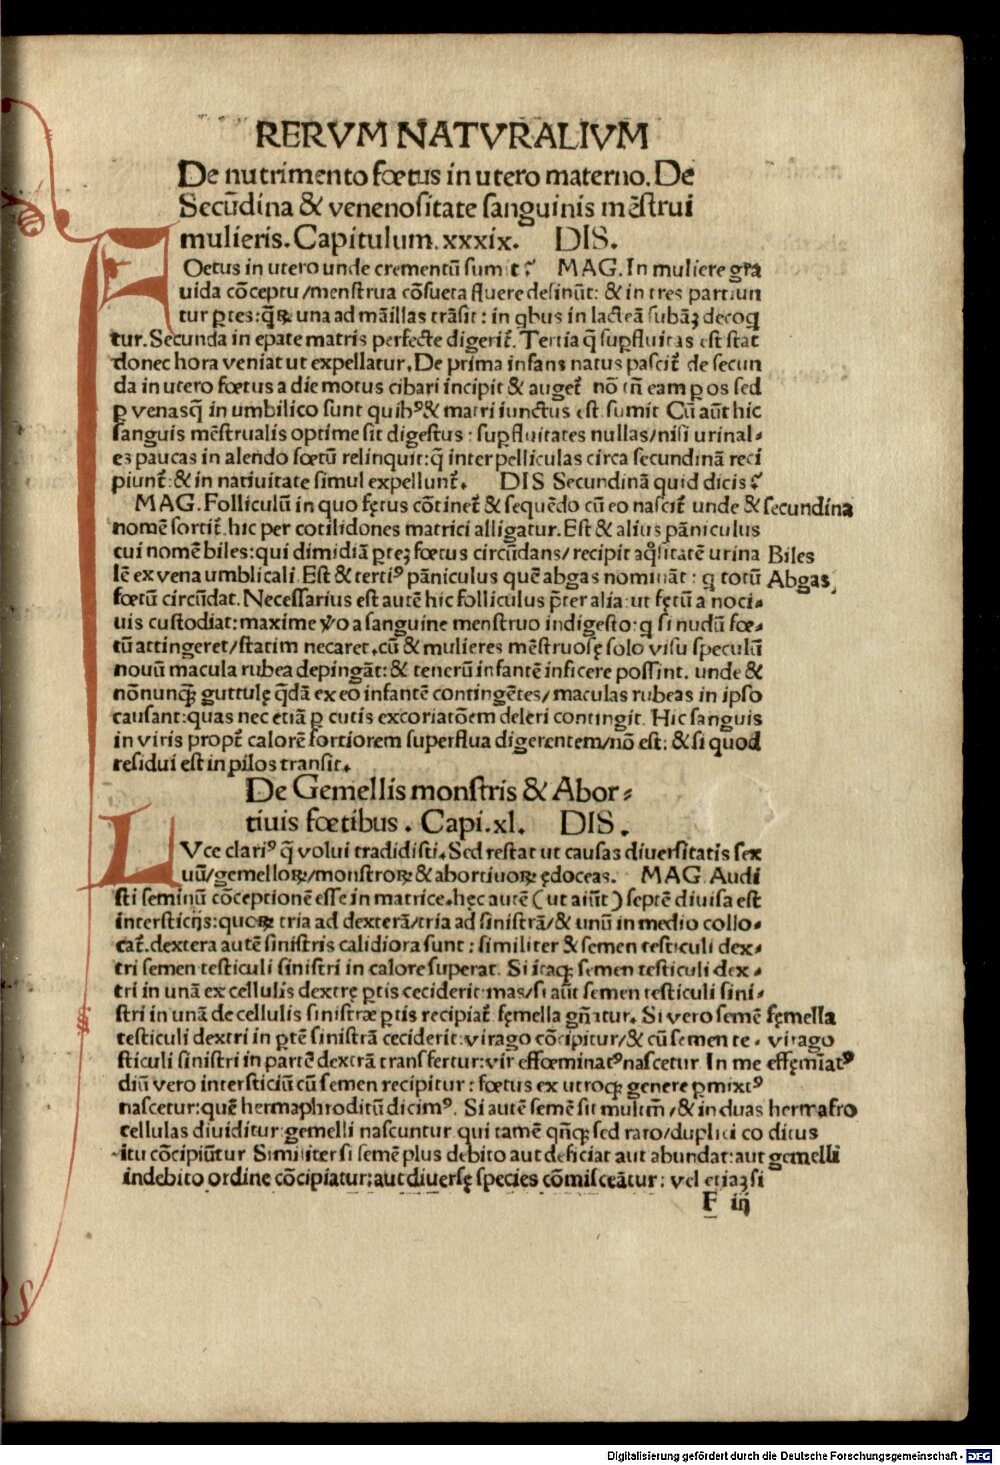 RERVM NATVRALIVM
De nutrimento fœtus in utero materno. De
Secūdina & venenositate sanguinis mēstrui
mulieris. Capitulum. xxxix. DIS.
FOetus in utero unde crementū sumit? MAG. In muliere gra
uida cōceptu/menstrua cōsueta fluere desinūt: & in tres partiun
tur ꝑtes: q̄ꝝ una ad māillas trāsit: in qbus in lacteā subāꝫ decoq
tur. Secunda in epate matris perfecte digerit̄. Tertia q̄ suꝑfluitas est stat
donec hora veniat ut expellatur. De prima infans natus pascit̄ de secun
da in utero fœtus a die motus cibari incipit & auget̄ nō tn̄ eam ꝑ os sed
ꝑ venasq̄ in umbilico sunt quibꝰ & matri iunctus est sumit Cū aūt hic
sanguis mēstrualis optime sit digestus: suꝑfluitates nullas/nisi urinal-
es paucas in alendo fœtū relinquit: q̄ inter pelliculas circa secundinā reci
piunt̄: & in natiuitate simul expellunt̄. DIS Secundinā quid dicis?
MAG. Folliculū in quo fętus cōtinet̄ & sequēdo cū eo nascit̄ unde & secundina
nomē sortit̄. hic per cotilidones matrici alligatur. Est & alius pāniculus
cui nomē biles: qui dimidiā ꝑteꝫ fœtus circūdans/recipit aq̄sitatē urina Biles
lē ex vena umblicali. Est & tertiꝰ pāniculus quē abgas nomināt: q totū Abgas
fœtū circūdat. Necessarius est autē hic folliculus p̄ter alia: ut fętū a noci-
uis custodiat: maxime ꝟo a sanguine menstruo indigesto: q si nudū fœ-
tū attingeret/statim necaret. cū & mulieres mēstruosę solo visu speculū
nouū macula rubea depingāt: & tenerū infantē inficere possint. unde &
nōnunqꝫ guttulę q̄dā ex eo infantē contingētes/ maculas rubeas in ipso
causant: quas nec etiā ꝑ cutis excoriatōem deleri contingit. Hic sanguis
in viris propt̄ calorē fortiorem superflua digerentem/nō est: & si quod
residui est in pilos transit.
De Gemellis monstris & Abor-
tiuis fœtibus. Capi. xl. DIS.
LVce clariꝰ q̄ volui tradidisti. Sed restat ut causas diuersitatis sex
uū/gemelloꝝ/monstroꝝ & abortiuoꝝ ędoceas. MAG. Audi
sti seminū cōceptionē esse in matrice. hęc autē (ut aiūt) septē diuisa est
interstitijs: quoꝝ tria ad dexterā/tria ad sinistrā/& unū in medio collo-
cat̄. dextera autē sinistris calidiora sunt: similiter & semen testiculi dex-
tri semen testiculi sinistri in calore superat. Si itaqꝫ semen testiculi dex-
tri in unā ex cellulis dextrę ꝑtis ceciderit mas/si aūt semen testiculi sini-
stri in unā de cellulis sinistræ ꝑtis recipiat̄ fęmella gn̄atur. Si vero semē fęmella
testiculi dextri in ꝑtē sinistrā ceciderit: virago cōcipitur/& cū semen te- virago
sticuli sinistri in partē dextrā transfertur: vir effœminatꝰ nascetur In me effęmīatꝰ
diū vero intersticiū cū semen recipitur: fœtus ex utroqꝫ genere ꝑmixtꝰ
nascetur: quē hermaphroditū dicimꝰ. Si autē semē sit multm̄/& in duas hermafro
cellulas diuiditur gemelli nascuntur qui tamē qn̄qꝫ sed raro/duplici co ditus
itu cōcipiūtur Similiter si semē plus debito aut deficiat aut abundat: aut gemelli
indebito ordine cōcipiatur: aut diuersę species cōmisceātur: vel etiaꝫ si
F iij
Digitalisierung gefördert durch die Deutsche Forschungsgemeinschaft - DFG